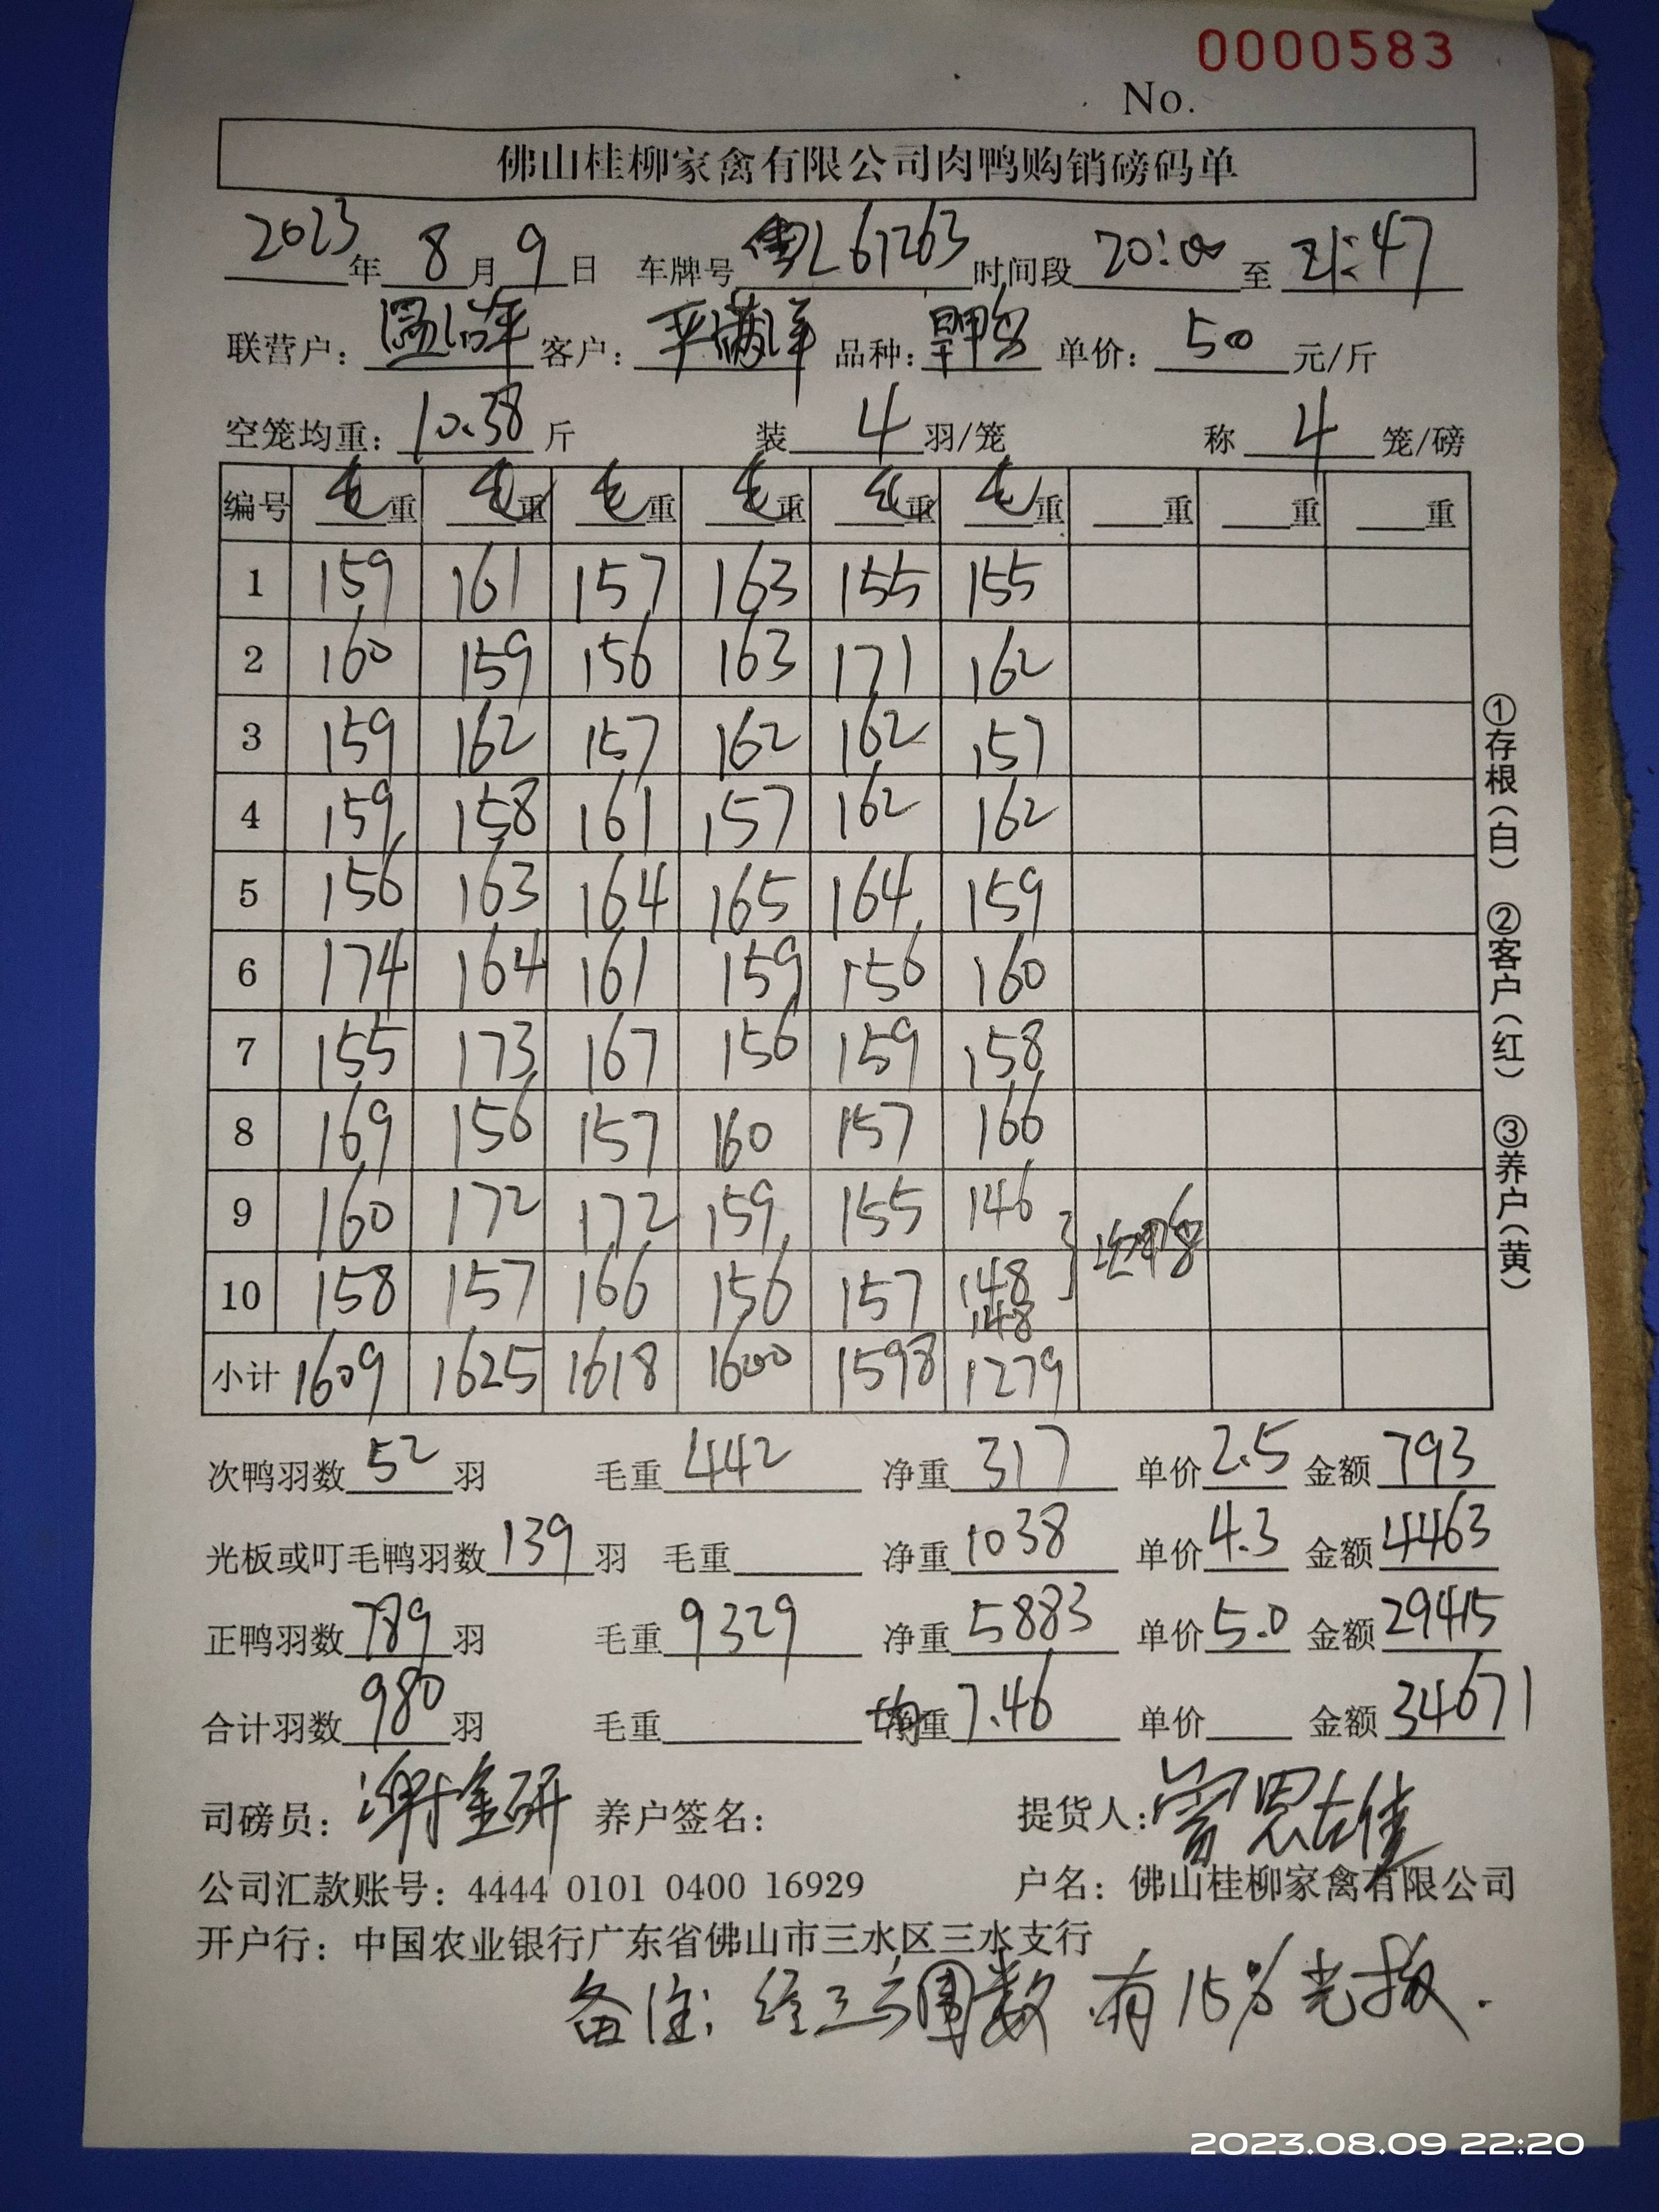 0000583
No.
佛山桂柳家禽有限公司肉鸭购销磅码单
2023年 8月 9日 车牌号 粤L67263 时间段 20:00 至 21:47
联营户: 客户: 品种: 单价: 50 元/斤
空笼均重: 10.38 斤 装 4 羽/笼 称 4 笼/磅
编号 毛重 毛重 毛重 毛重 毛重 毛重 重 重 重
1 159 161 157 163 155 155
2 160 159 156 163 171 162
3 159 162 157 162 162 157
4 159 158 161 157 162 162
5 156 163 164 165 164 159
6 174 164 161 159 156 160
7 155 173 167 156 159 158
8 169 156 157 160 157 166
9 160 172 172 159 155 146
10 158 157 166 156 157 148 次鸭
148
小计 1609 1625 1618 1600 1598 1279
次鸭羽数 52 羽 毛重 442 净重 317 单价 2.5 金额 793
光板或叮毛鸭羽数 139 羽 毛重 净重 1038 单价 4.3 金额 4463
正鸭羽数 789 羽 毛重 9329 净重 5883 单价 5.0 金额 29415
合计羽数 980 羽 毛重 均重 7.46 单价 金额 34671
司磅员: 谢金研 养户签名: 提货人:
公司汇款账号: 4444 0101 0400 16929 户名: 佛山桂柳家禽有限公司
开户行: 中国农业银行广东省佛山市三水区三水支行
备注: 经三方围数 有15%光板.
①存根(白) ②客户(红) ③养户(黄)
2023.08.09 22:20